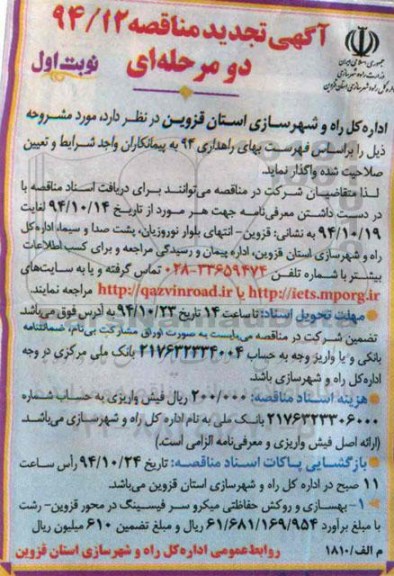 آگهی تجدید مناقصه ۹۴/۱۲
دو مرحله‌ای
نوبت اول
جمهوری اسلامی ایران
وزارت راه و شهرسازی
اداره کل راه و شهرسازی استان قزوین
اداره کل راه و شهرسازی استان قزوین در نظر دارد، مورد مشروحه
ذیل را براساس فهرست بهای راهداری ۹۴ به پیمانکاران واجد شرایط و تعیین
صلاحیت شده واگذار نماید.
لذا متقاضیان شرکت در مناقصه می‌توانند برای دریافت اسناد مناقصه با
در دست داشتن معرفی‌نامه جهت هر مورد از تاریخ ۹۴/۱۰/۱۴ لغایت
۹۴/۱۰/۱۹ به نشانی: قزوین- انتهای بلوار نوروزیان، پشت صدا و سیما، اداره کل
راه و شهرسازی استان قزوین، اداره پیمان و رسیدگی مراجعه و برای کسب اطلاعات
بیشتر با شماره تلفن ۳۳۶۵۹۴۷۴-۰۲۸ تماس گرفته و یا به سایت‌های
http://iets.mporg.ir یا http://qazvinroad.ir مراجعه نمایند.
مهلت تحویل اسناد: تا ساعت ۱۴ تاریخ ۹۴/۱۰/۲۳ به آدرس فوق می‌باشد.
تضمین شرکت در مناقصه می‌بایست به صورت اوراق مشارکت بی‌نام، ضمانتنامه
بانکی و یا واریز وجه به حساب ۲۱۷۶۳۲۳۳۴۰۰۴ بانک ملی مرکزی در وجه
اداره کل راه و شهرسازی باشد.
هزینه اسناد مناقصه: ۲۰۰/۰۰۰ ریال فیش واریزی به حساب شماره
۲۱۷۶۳۲۳۳۰۶۰۰۰ بانک ملی به نام اداره کل راه و شهرسازی می‌باشد.
(ارائه اصل فیش واریزی و معرفی‌نامه الزامی است.)
بازگشایی پاکات اسناد مناقصه: تاریخ ۹۴/۱۰/۲۴ رأس ساعت
۱۱ صبح در اداره کل راه و شهرسازی استان قزوین می‌باشد.
۱- بهسازی و روکش حفاظتی میکرو سر فیسینگ در محور قزوین- رشت
با مبلغ برآورد ۶۱/۶۸۱/۱۶۹/۹۵۴ ریال و مبلغ تضمین ۶۱۰ میلیون ریال
م الف/۱۸۱۰ روابط عمومی اداره کل راه و شهرسازی استان قزوین